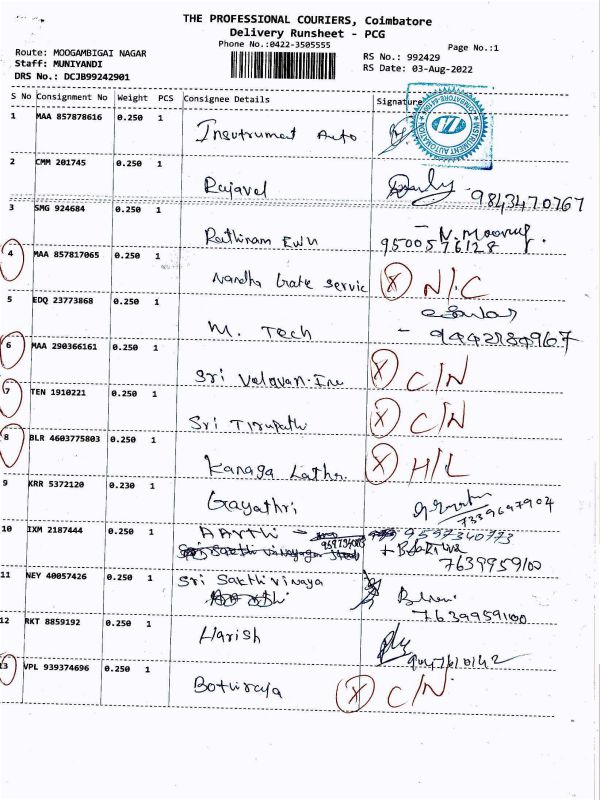 THE PROFESSIONAL COURIERS, Coimbatore
Delivery Runsheet - PCG
Phone No.:0422-3505555
Page No.:1
Route: MOOGAMBIGAI NAGAR
Staff: MUNIYANDI
DRS No.: DCJB99242901
RS No.: 992429
RS Date: 03-Aug-2022
S No Consignment No Weight PCS Consignee Details Signature
1 MAA 857878616 0.250 1 Insutrument Auto
INSTRUMENT AUTOMATION
2 CMM 201745 0.250 1 Rajavel 9843470767
3 SMG 924684 0.250 1 Rathinam Ewu - N. Moorthy.
9500576128
4 MAA 857817065 0.250 1 Nandha Gate Servic X N/C
5 EDQ 23773868 0.250 1 M. Tech - 9442184967
6 MAA 290366161 0.250 1 Sri Valavan X C/N
7 TEN 1910221 0.250 1 Sri Tirupathi X C/N
8 BLR 4603775803 0.250 1 Kanaga Lathr. X H/L
9 KRR 5372120 0.230 1 Gayathri 7339697904
10 IXM 2187444 0.250 1 AARTHI - 9597340773
7639959100
11 NEY 40057426 0.250 1 Sri Sakthi vinaya
7639959100
12 RKT 8859192 0.250 1 Harish
13 VPL 939374696 0.250 1 Bothiraja X C/N